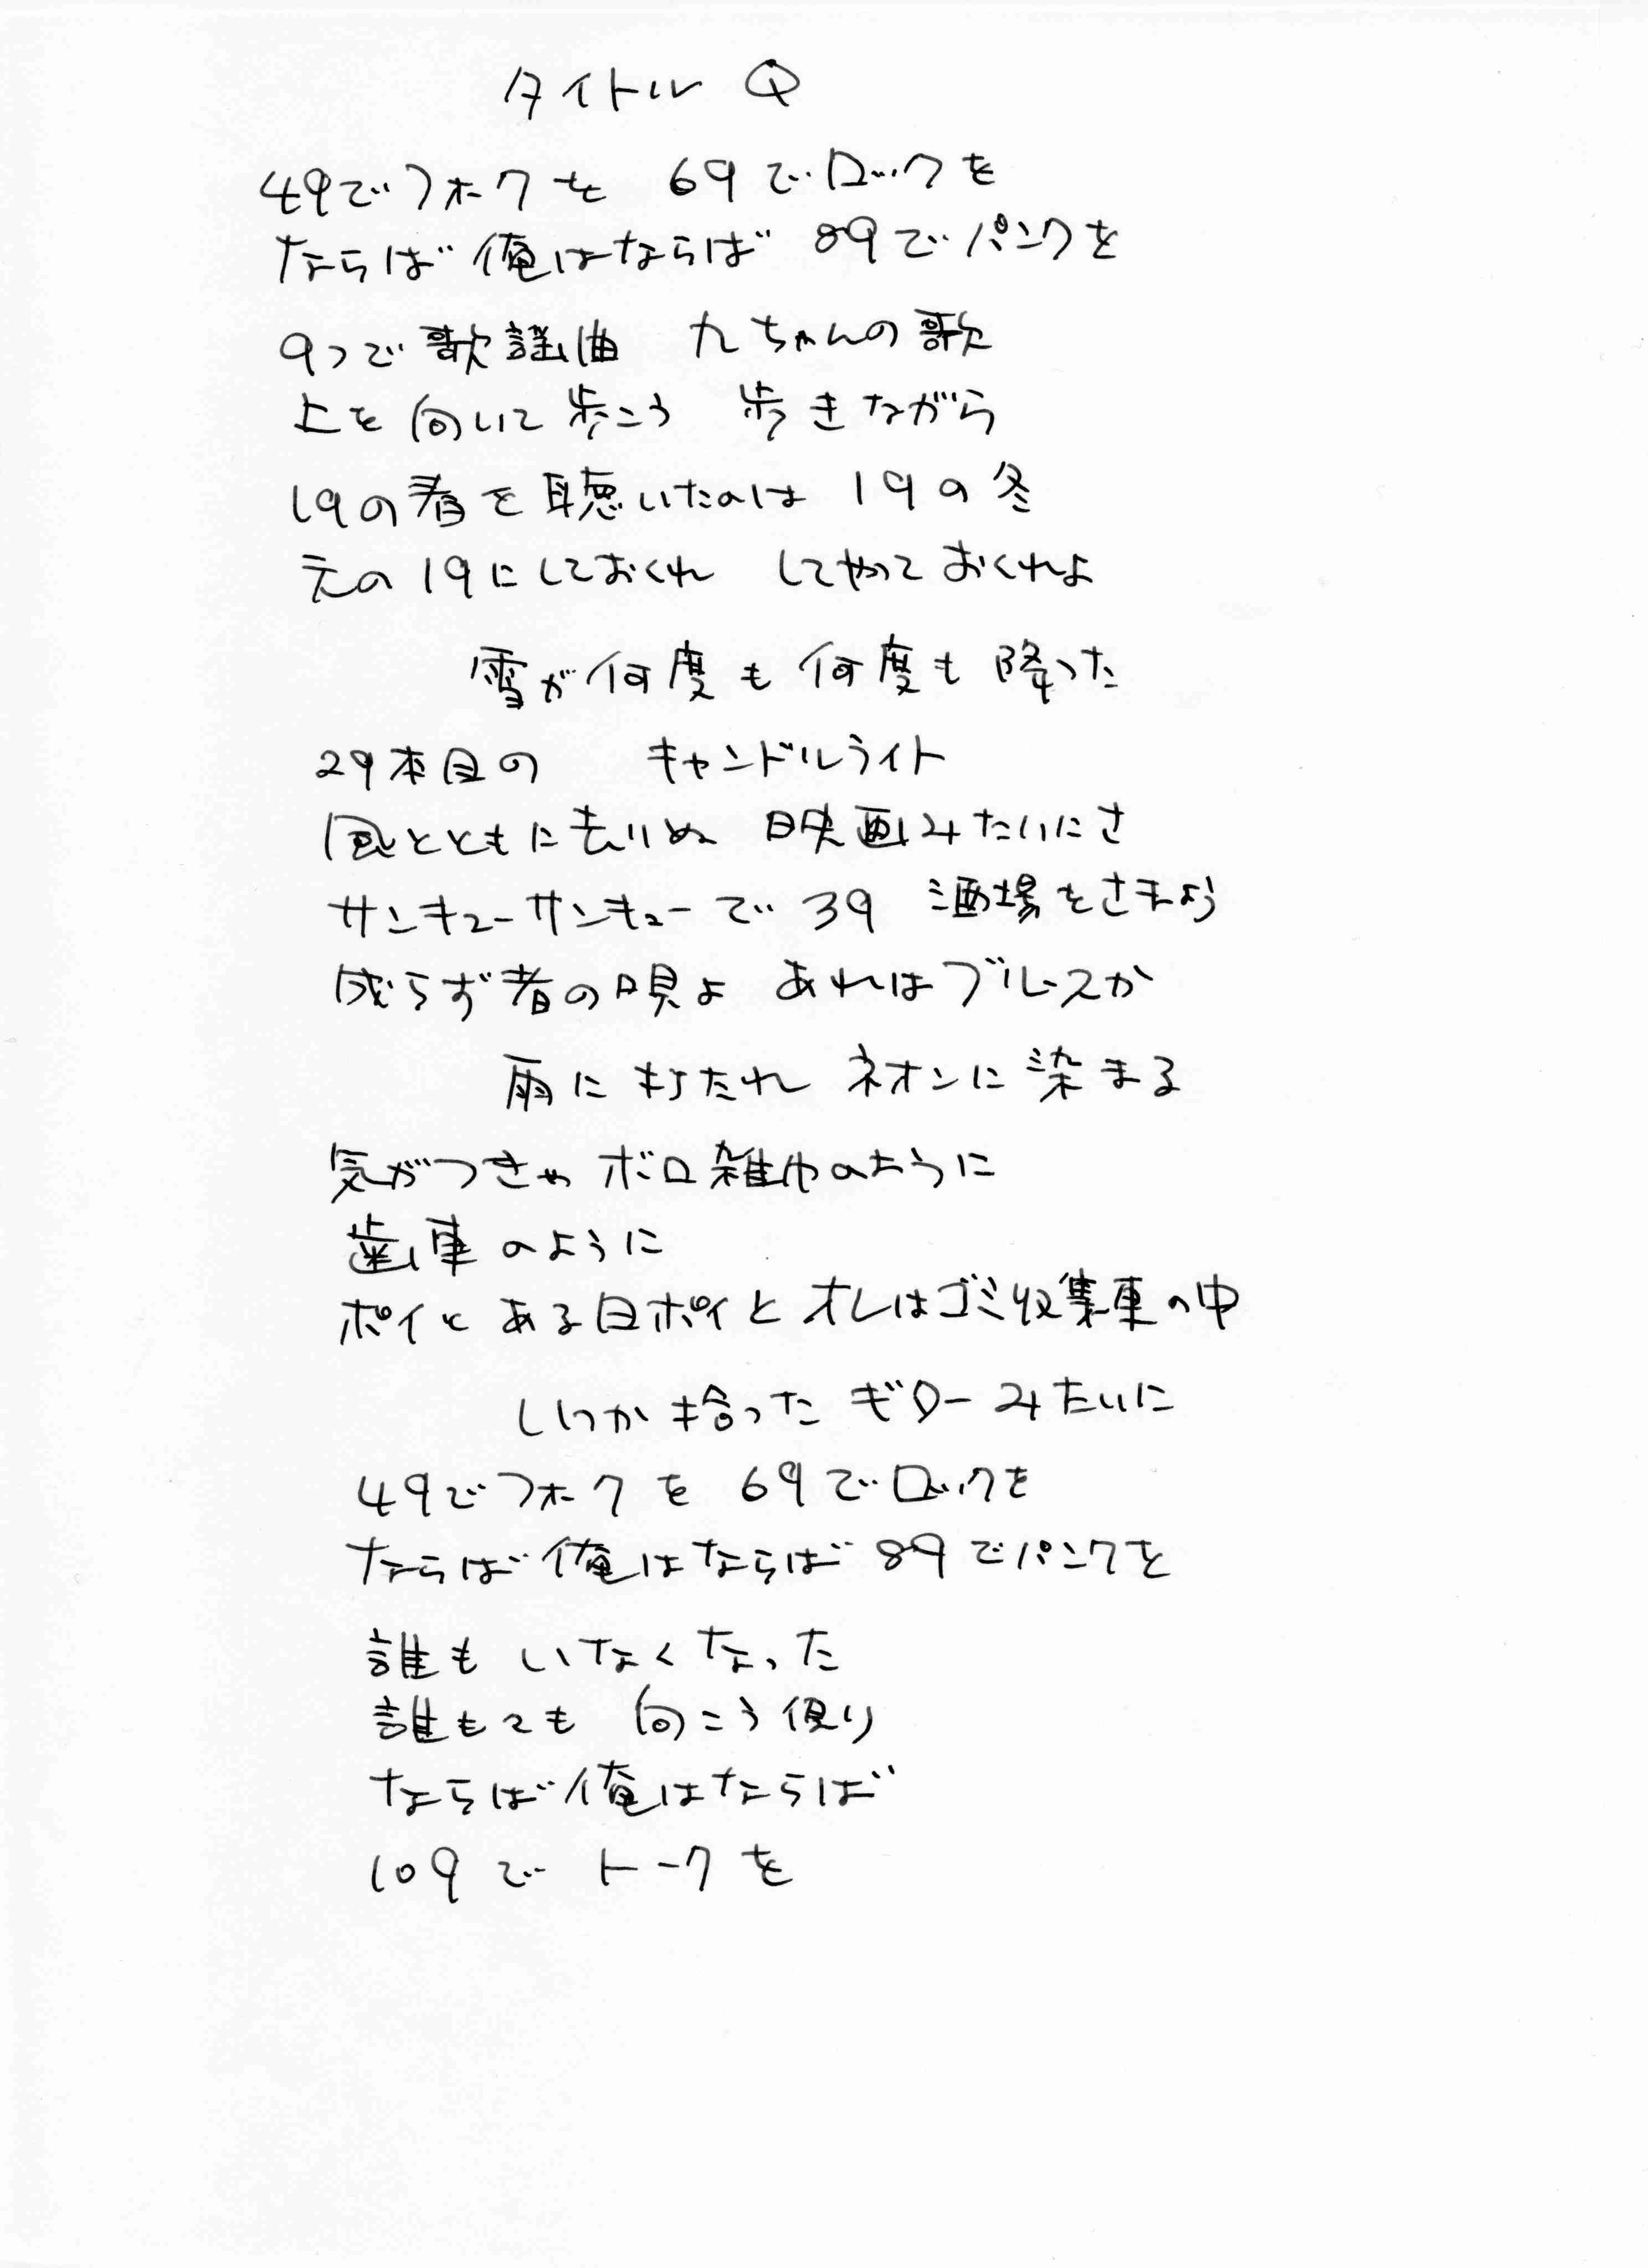 タイトル Q
49でフォークを 69でロックを
ならば俺はならば 89でパンクを
9つで歌謡曲 九ちゃんの歌
上を向いて歩こう 歩きながら
19の春を聴いたのは 19の冬
元の19にしておくれ してやっておくれよ
雪が何度も何度も降った
29本目の キャンドルライト
風とともに去りぬ 映画みたいにさ
サンキューサンキューで39 酒場をさまよう
成らず者の唄よ あれはブルースか
雨に打たれ ネオンに染まる
気がつきゃ ボロ雑巾のように
歯車のように
ポイと ある日ポイと オレはゴミ収集車の中
いつか拾った ギターみたいに
49でフォークを 69でロックを
ならば俺はならば 89でパンクを
誰も いなくなった
誰もても 向こう便り
ならば俺はならば
109で トークを